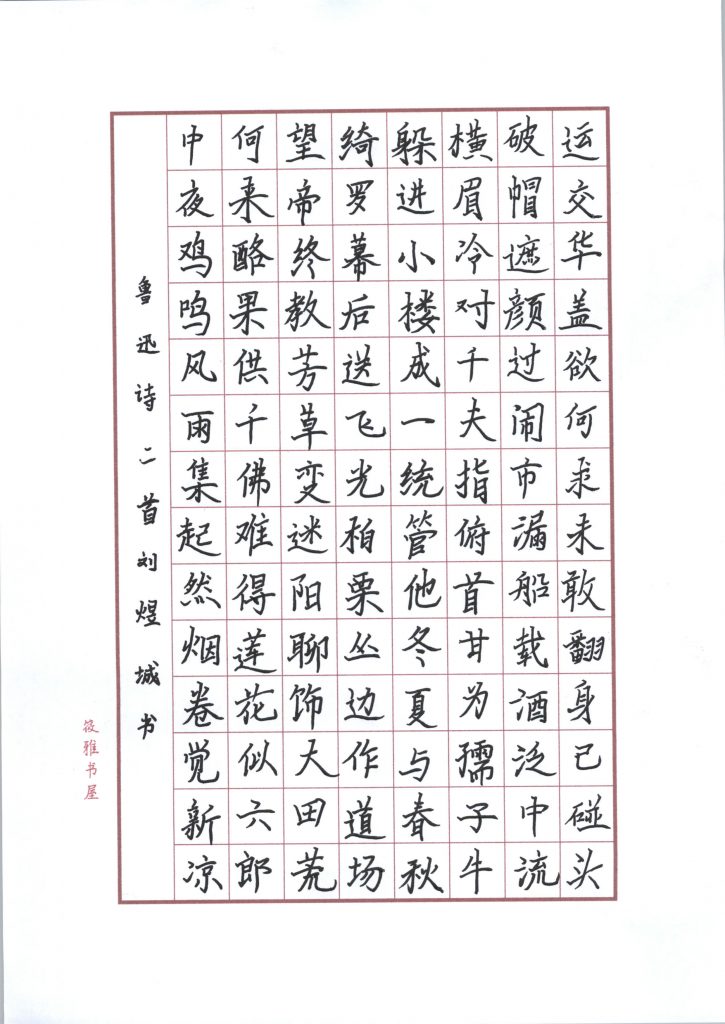 运交华盖欲何求未敢翻身已碰头
破帽遮颜过闹市漏船载酒泛中流
横眉冷对千夫指俯首甘为孺子牛
躲进小楼成一统管他冬夏与春秋
绮罗幕后送飞光柏栗丛边作道场
望帝终教芳草变迷阳聊饰大田荒
何来酪果供千佛难得莲花似六郎
中夜鸡鸣风雨集起然烟卷觉新凉
鲁迅诗二首刘煜城书
筱雅书屋